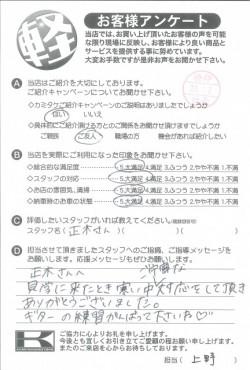 軽
お客様アンケート
当店では、お買い上げ頂いたお客様の声を可能
な限り現場に反映し、お客様により良い商品と
サービスを提供する事に努めています。
大変お手数ですが是非お声をお聞かせ下さい。
A 当店はご紹介を大切にしております。
ご紹介キャンペーンについてお聞かせ下さい。
◇カミタケご紹介キャンペーンのご説明はありましたでしょうか
はい いいえ
◇具体的にご紹介頂ける方とのご関係をお聞かせ頂けますでしょうか
ご親族 ご友人 職場の方 機会があれば紹介したい
B 当店を実際にご利用になった印象をお聞かせ下さい。
◇総合的な満足度 5.大満足 4.満足 3.ふつう 2.やや不満 1.不満
◇スタッフの対応 5.大満足 4.満足 3.ふつう 2.やや不満 1.不満
◇お店の雰囲気、清掃 5.大満足 4.満足 3.ふつう 2.やや不満 1.不満
◇納車時のお車の状態 5.大満足 4.満足 3.ふつう 2.やや不満 1.不満
C 評価したいスタッフがいれば教えてください。
スタッフ名( 正木さん )
D 担当させて頂きましたスタッフへのご指摘、ご指導メッセージを
お願いします。応援メッセージもぜひお願いします。
正木さんへ
見学に来たとき寒い中対応をして頂き
ありがとうございました。
ギターの練習がんばって下さいね♡
ご協力に心よりお礼を申し上げます。
今後とも宜しくお引き立てご愛顧の程お願い申し上げます。
またのご来店を心からお待ちしております。
担当( 上野 )